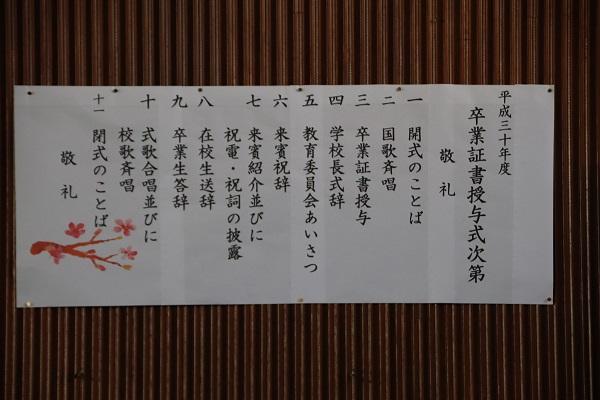 平成三十年度
卒業証書授与式次第
敬礼
一 開式のことば
二 国歌斉唱
三 卒業証書授与
四 学校長式辞
五 教育委員会あいさつ
六 来賓祝辞
七 来賓紹介並びに
祝電・祝詞の披露
八 在校生送辞
九 卒業生答辞
十 式歌合唱並びに
校歌斉唱
十一 閉式のことば
敬礼